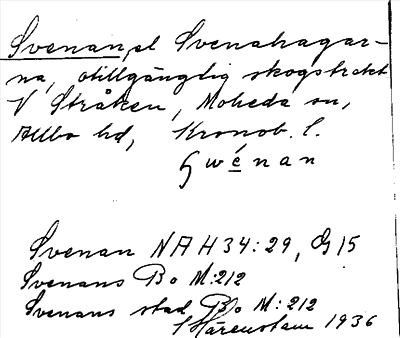 Svenan, el Svenahagar-
na, otillgänglig skogstrakt
V Stråken, Moheda sn,
Allbo hd, Kronob. l.
Svenan NAH 34:29, G 15
Svenans Bo M:212
Svenans stad Bo M:212
Härenstam 1936